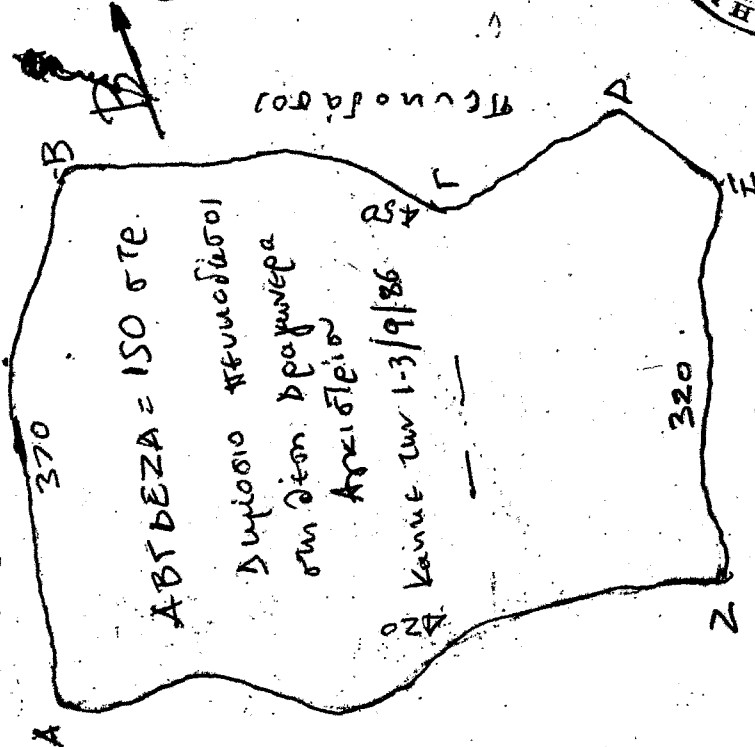 Β
Α
370
Β
ΑΒΓΔΕΖΑ = 150 στρ.
Δημόσιο πευκοδάσος
στη θέση Δραγωνερα
Αγκιστρίου
Κάηκε την 1-3/9/86
420
450
Γ
Πευκοδάσος
Δ
Ε
320
Ζ